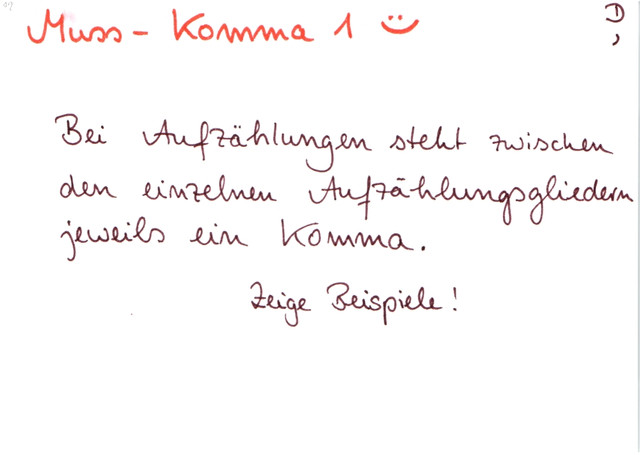 Muss - Komma 1
D
,
Bei Aufzählungen steht zwischen
den einzelnen Aufzählungsgliedern
jeweils ein Komma.
Zeige Beispiele!